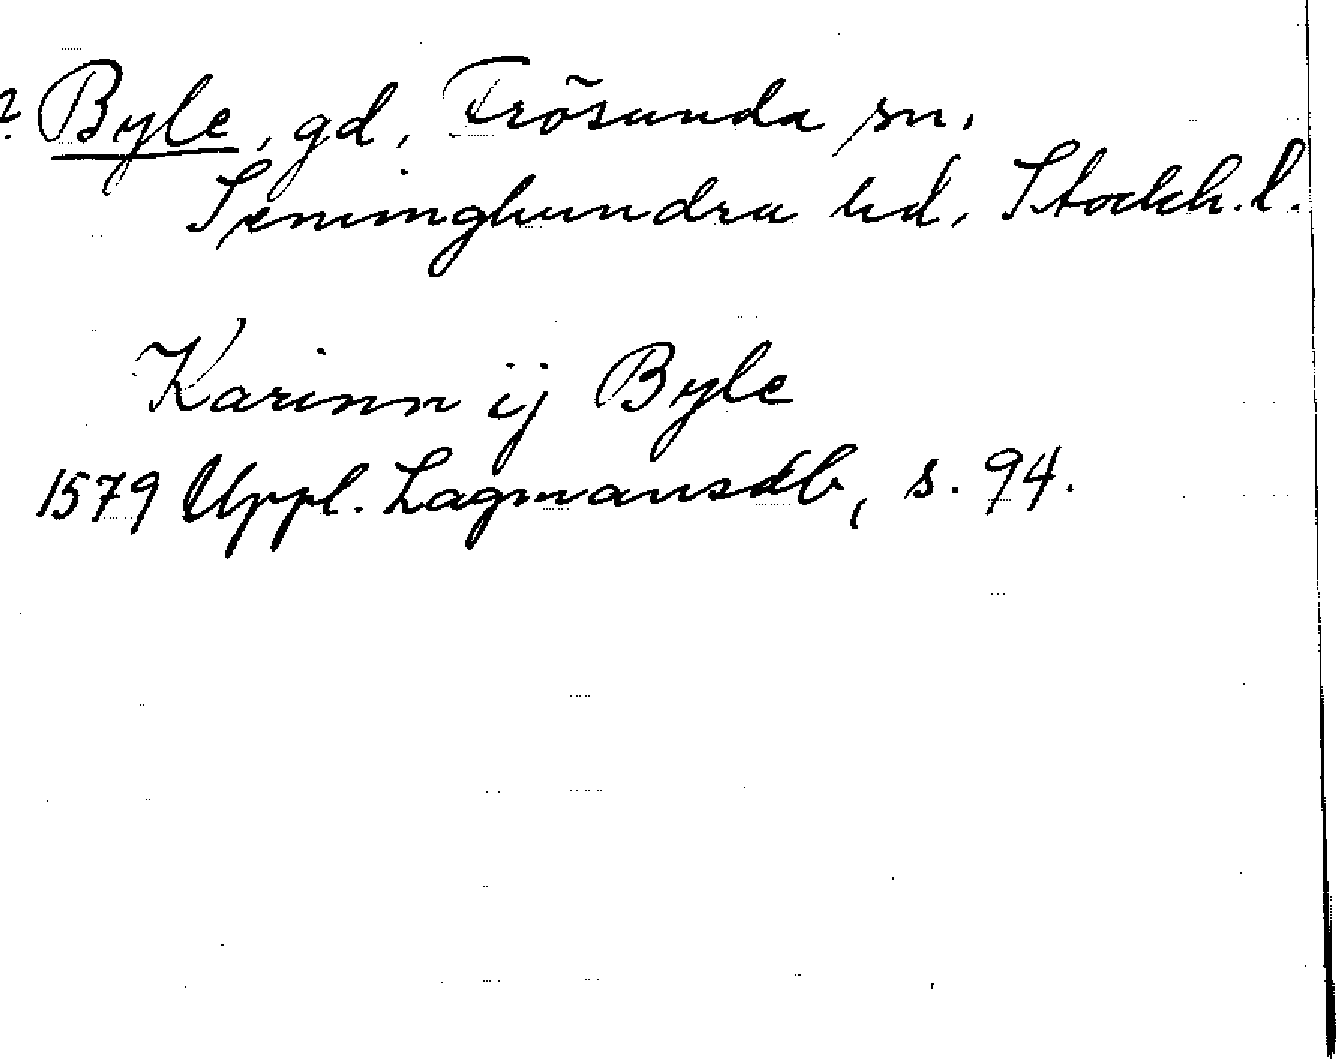 ? Byle, gd, Frösunda sn.
Seminghundra hd, Stockh. l.
Karinn ij Byle
1579 Uppl. Lagmansdb, s. 94.